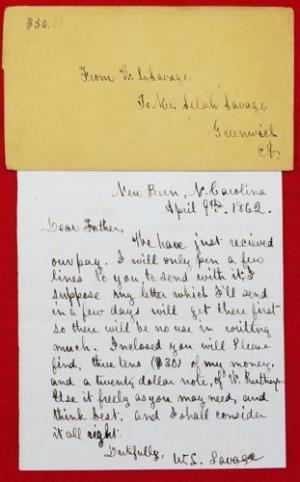 $50.
From W. L. Savage
To Mr. Selah Savage
Greenwich
Ct.
New Bern, N. Carolina
April 9th. 1862.
Dear Father,
We have just recieved
our pay. I will only pen a few
lines to you to send with it, I
suppose my letter which I'll send
in a few days will get there first
so there will be no use in writting
much. Inclosed you will Please
find, three tens ($30) of my money,
and a twenty dollar note, of W.
Use it freely as you may need, and
think best. and I shall consider
it all right.
Dutifully, W. L. Savage